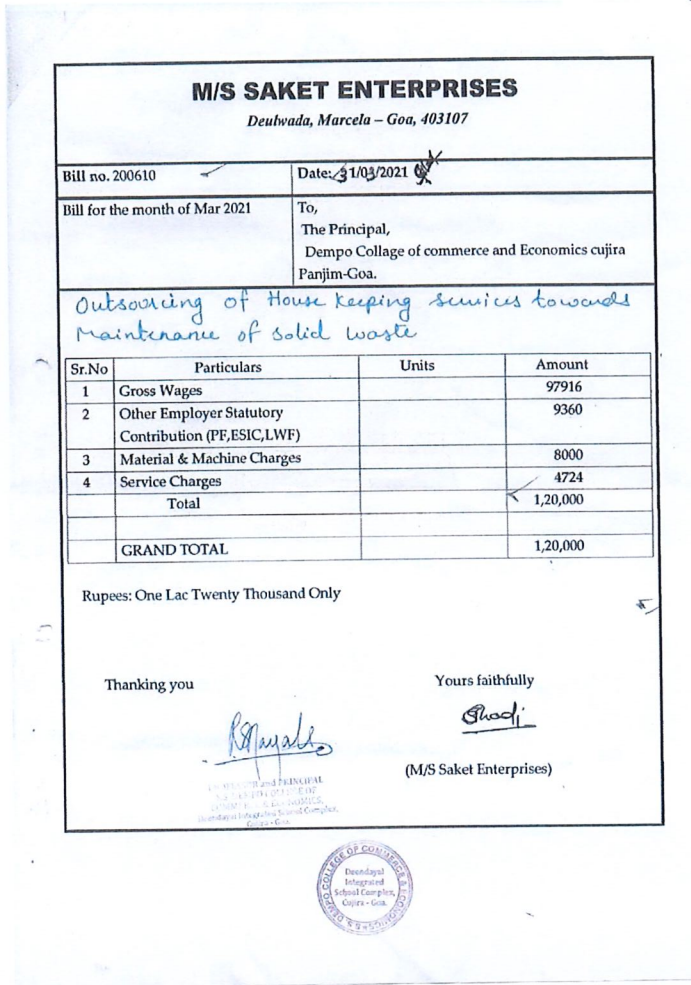 M/S SAKET ENTERPRISES
Deulwada, Marcela – Goa, 403107
Bill no. 200610
Date: 31/03/2021
Bill for the month of Mar 2021
To,
The Principal,
Dempo Collage of commerce and Economics cujira
Panjim-Goa.
Outsourcing of House Keeping services towards
Maintenance of solid waste
Sr.No Particulars Units Amount
1 Gross Wages 97916
2 Other Employer Statutory 9360
Contribution (PF,ESIC,LWF)
3 Material & Machine Charges 8000
4 Service Charges 4724
Total 1,20,000
GRAND TOTAL 1,20,000
Rupees: One Lac Twenty Thousand Only
Thanking you
Yours faithfully
(M/S Saket Enterprises)
and PRINCIPAL
COLLEGE OF
COMMERCE & ECONOMICS,
Deendayal Integrated School Complex,
Cujira - Goa.
DEMPO COLLEGE OF COMMERCE & ECONOMICS
Deendayal
Integrated
School Complex,
Cujira - Goa.